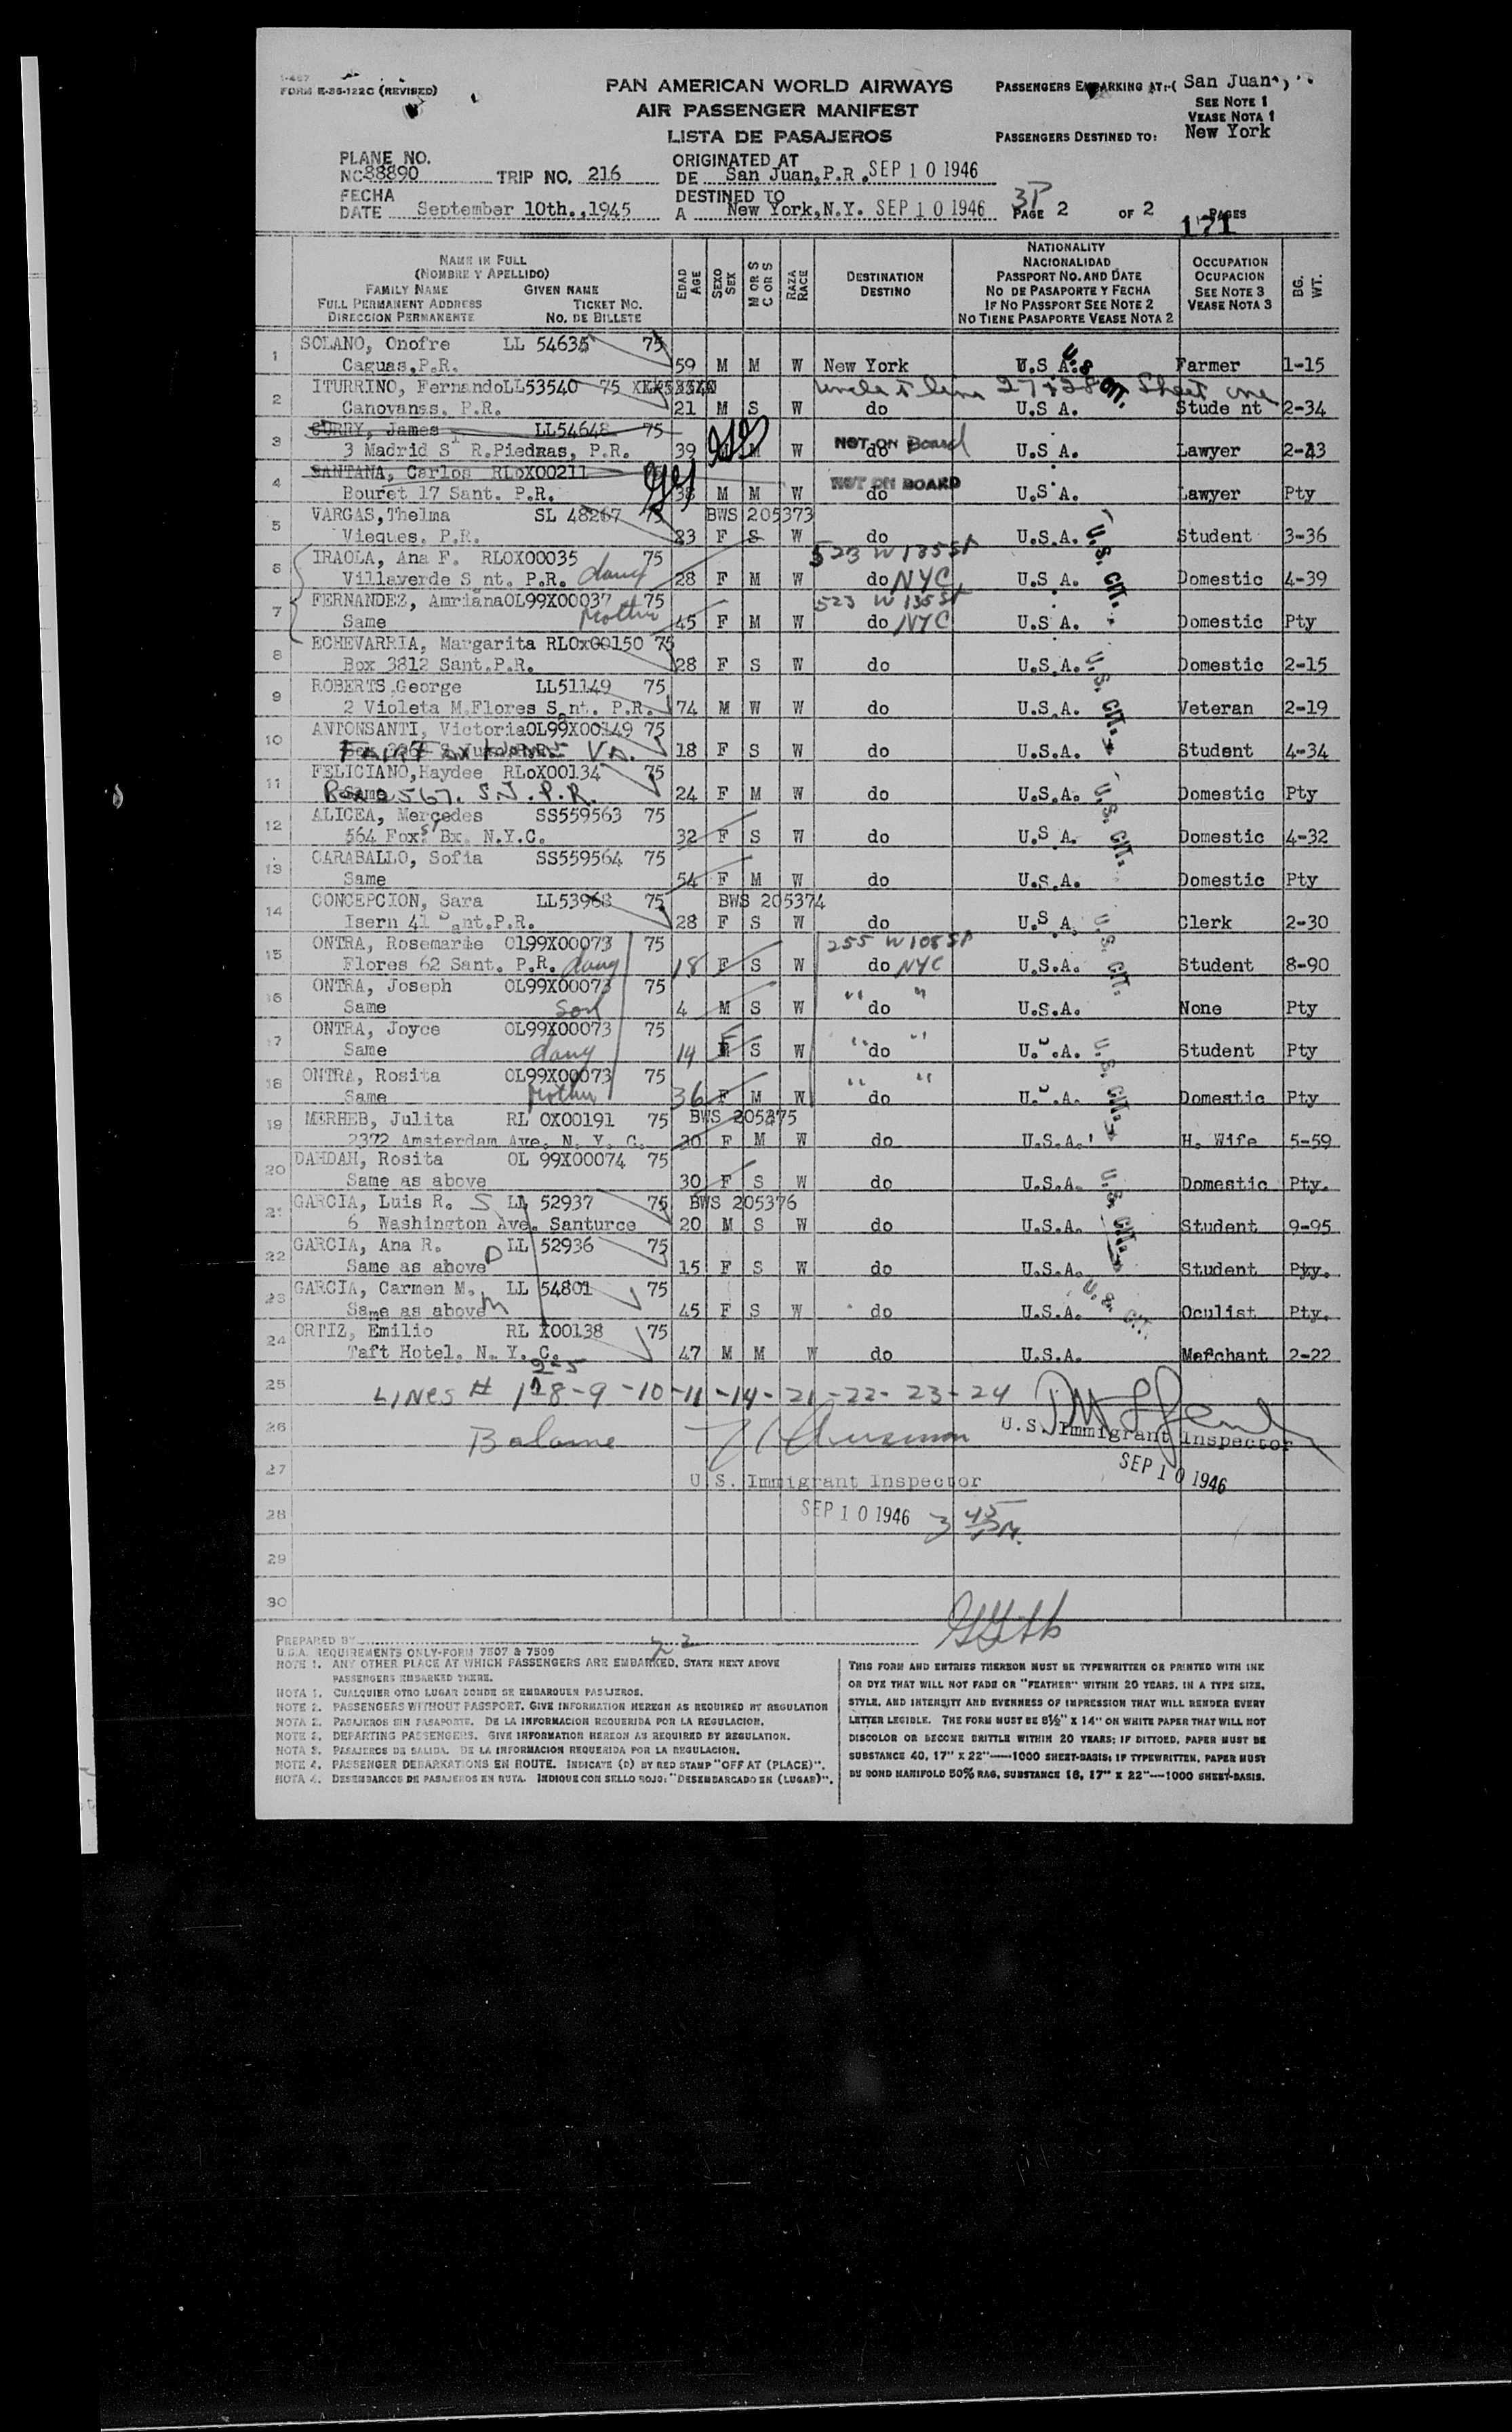 I-467
FORM E-36-122C (REVISED)
PAN AMERICAN WORLD AIRWAYS
AIR PASSENGER MANIFEST
LISTA DE PASAJEROS
PASSENGERS EMBARKING AT:-( San Juan,
SEE NOTE 1
VEASE NOTA 1
PASSENGERS DESTINED TO: New York
PLANE NO.
NC88890 TRIP NO. 216
ORIGINATED AT
DE San Juan, P.R. SEP 10 1946
FECHA
DATE September 10th.,1945
DESTINED TO
A New York, N.Y. SEP 10 1946
PAGE 2 OF 2 PAGES
171
NAME IN FULL
(NOMBRE Y APELLIDO)
FAMILY NAME GIVEN NAME
FULL PERMANENT ADDRESS TICKET NO.
DIRECCION PERMANENTE NO. DE BILLETE
EDAD AGE
SEXO SEX
M OR S C OR S
RAZA RACE
DESTINATION
DESTINO
NATIONALITY
NACIONALIDAD
PASSPORT NO. AND DATE
NO DE PASAPORTE Y FECHA
IF NO PASSPORT SEE NOTE 2
NO TIENE PASAPORTE VEASE NOTA 2
OCCUPATION
OCUPACION
SEE NOTE 3
VEASE NOTA 3
BG. WT.
1 SOLANO, Onofre LL 54635 75
Caguas, P.R. 59 M M W New York U.S A. Farmer 1-15
2 ITURRINO, Fernando LL53540 75
Canovanas. P.R. 21 M S W do U.S A. Stude nt 2-34
uncle to line 27 & 28 Sheet one
3 CURRY, James LL54648 75
3 Madrid St R.Piedras, P.R. 39 M M W do U.S A. Lawyer 2-43
NOT ON Board
4 SANTANA, Carlos RLoX00211 75
Bouret 17 Sant. P.R. 38 M M W do U.S A. Lawyer Pty
NOT ON BOARD
5 VARGAS, Thelma SL 48267 75 BWS 205373
Vieques. P.R. 23 F S W do U.S.A. Student 3-36
6 IRAOLA, Ana F. RLOX00035 75 523 W 135 St
Villaverde S nt. P.R. daug 28 F M W do NYC U.S A. Domestic 4-39
7 FERNANDEZ, Amriana OL99X00037 75 523 W 135 St
Same Mother 45 F M W do NYC U.S A. Domestic Pty
8 ECHEVARRIA, Margarita RLOx00150 75
Box 3812 Sant.P.R. 28 F S W do U.S.A. Domestic 2-15
9 ROBERTS George LL51149 75
2 Violeta M.Flores Sant. P.R. 74 M W W do U.S.A. Veteran 2-19
10 ANTONSANTI, Victoria OL99X00149 75
18 F S W do U.S.A. Student 4-34
11 FELICIANO, Haydee RLoX00134 75
Same Box 2567. S.J. P.R. 24 F M W do U.S.A. Domestic Pty
12 ALICEA, Mercedes SS559563 75
564 Fox St Bx. N.Y.C. 32 F S W do U.S A. Domestic 4-32
13 CARABALLO, Sofia SS559564 75
Same 54 F M W do U.S.A. Domestic Pty
14 CONCEPCION, Sara LL53968 75 BWS 205374
Isern 41 Sant.P.R. 28 F S W do U.S A. Clerk 2-30
15 ONTRA, Rosemarie OL99X00073 75 255 W 108 St
Flores 62 Sant. P.R. daug 18 F S W do NYC U.S.A. Student 8-90
16 ONTRA, Joseph OL99X00073 75
Same Son 4 M S W " do " U.S.A. None Pty
17 ONTRA, Joyce OL99X00073 75
Same daug 14 F S W " do " U.S.A. Student Pty
18 ONTRA, Rosita OL99X00073 75
Same Mother 36 F M W " do " U.S.A. Domestic Pty
19 MERHEB, Julita RL OX00191 75 BWS 205375
2372 Amsterdam Ave. N. Y. C. 30 F M W do U.S.A. H. Wife 5-59
20 DAHDAH, Rosita OL 99X00074 75
Same as above 30 F S W do U.S.A. Domestic Pty.
21 GARCIA, Luis R. S LL 52937 75 BWS 205376
6 Washington Ave. Santurce 20 M S W do U.S.A. Student 9-95
22 GARCIA, Ana R. LL 52936 75
Same as above D 15 F S W do U.S.A. Student Pty.
23 GARCIA, Carmen M. LL 54801 75
Same as above M 45 F S W do U.S.A. Oculist Pty.
24 ORTIZ, Emilio RL X00138 75
Taft Hotel, N. Y. C. 47 M M W do U.S.A. Merchant 2-22
U.S. CIT.
U.S. CIT.
U.S. CIT.
U.S. CIT.
U.S. CIT.
U.S. CIT.
U.S. CIT.
U.S. CIT.
2-5
25 LINES # 1 8-9-10-11-14-21-22-23-24
26 Balance
U.S. Immigrant Inspector
SEP 10 1946
27
U.S. Immigrant Inspector
28 SEP 10 1946 3 45 PM.
29
30
PREPARED BY
22
U.S.A. REQUIREMENTS ONLY-FORM 7507 & 7509
NOTE 1. ANY OTHER PLACE AT WHICH PASSENGERS ARE EMBARKED, STATE NEXT ABOVE
PASSENGERS EMBARKED THERE.
NOTA 1. CUALQUIER OTRO LUGAR DONDE SE EMBARQUEN PASAJEROS.
NOTE 2. PASSENGERS WITHOUT PASSPORT. GIVE INFORMATION HEREON AS REQUIRED BY REGULATION
NOTA 2. PASAJEROS SIN PASAPORTE. DE LA INFORMACION REQUERIDA POR LA REGULACION.
NOTE 3. DEPARTING PASSENGERS. GIVE INFORMATION HEREON AS REQUIRED BY REGULATION.
NOTA 3. PASAJEROS DE SALIDA. DE LA INFORMACION REQUERIDA POR LA REGULACION.
NOTE 4. PASSENGER DEBARKATIONS EN ROUTE. INDICATE (D) BY RED STAMP "OFF AT (PLACE)".
NOTA 4. DESEMBARCOS DE PASAJEROS EN RUTA. INDIQUE CON SELLO ROJO: "DESEMBARCADO EN (LUGAR)".
THIS FORM AND ENTRIES THEREON MUST BE TYPEWRITTEN OR PRINTED WITH INK
OR DYE THAT WILL NOT FADE OR "FEATHER" WITHIN 20 YEARS, IN A TYPE SIZE,
STYLE, AND INTENSITY AND EVENNESS OF IMPRESSION THAT WILL RENDER EVERY
LETTER LEGIBLE. THE FORM MUST BE 8½" X 14" ON WHITE PAPER THAT WILL NOT
DISCOLOR OR BECOME BRITTLE WITHIN 20 YEARS; IF DITTOED, PAPER MUST BE
SUBSTANCE 40, 17" X 22"-----1000 SHEET-BASIS; IF TYPEWRITTEN, PAPER MUST
BE BOND MANIFOLD 50% RAG, SUBSTANCE 16, 17" X 22"----1000 SHEET-BASIS.